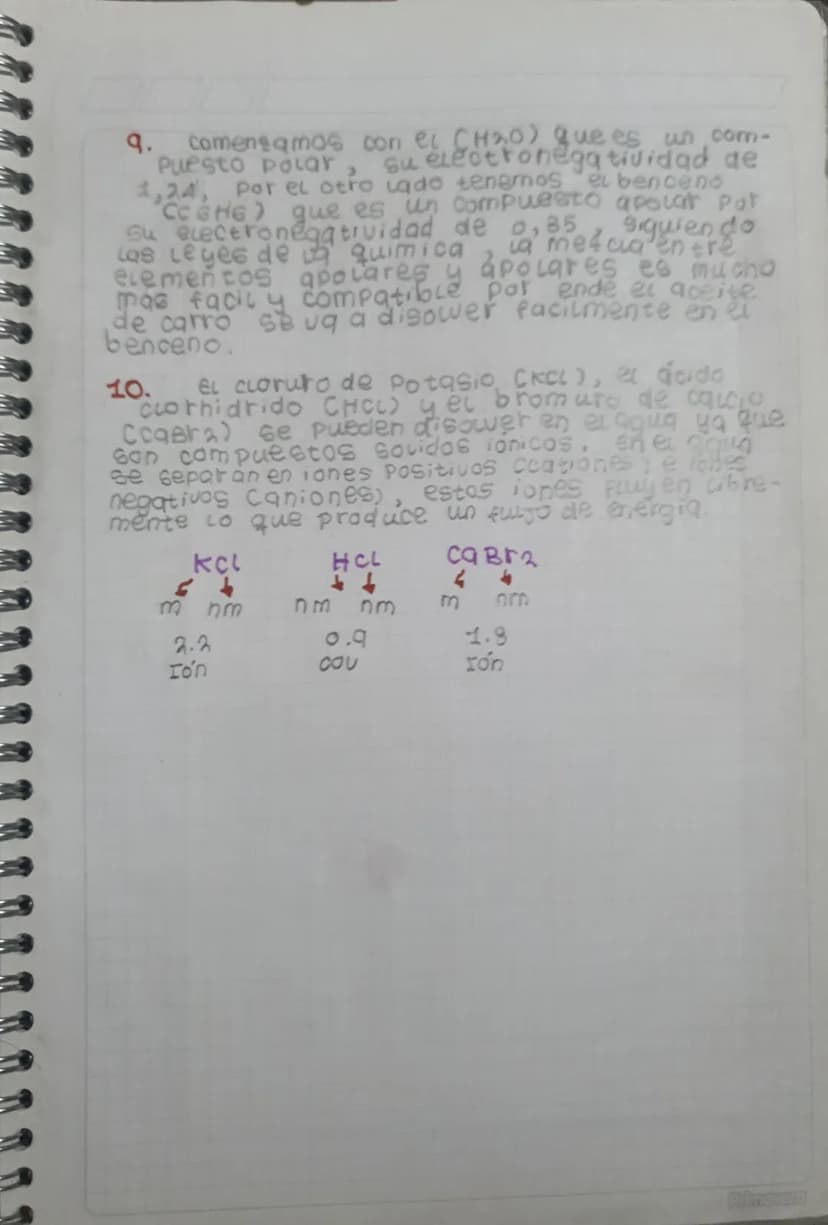 9. comensamos con el (H2O) que es un com-
puesto polar, su electronegatividad de
1,24, por el otro lado tenemos el benceno
(C6H6) que es un compuesto apolar por
su electronegatividad de 0,35, siguiendo
las leyes de la quimica, la mescla entre
elementos apolares y apolares es mucho
mas facil y compatible por ende el aceite
de carro se va a disolver facilmente en el
benceno.
10. El cloruro de Potasio (KCl), el ácido
clorhidrido (HCl) y el bromuro de calcio
(CaBr2) se pueden disolver en el agua ya que
son compuestos solidos iónicos. En el agua
se separan en iones positivos (cationes) e iones
negativos (aniones), estos iones fluyen libre-
mente lo que produce un flujo de energia.
KCl HCl CaBr2
m nm nm nm m nm
2.2 0.9 1.8
Ión cov Ión
Primavera